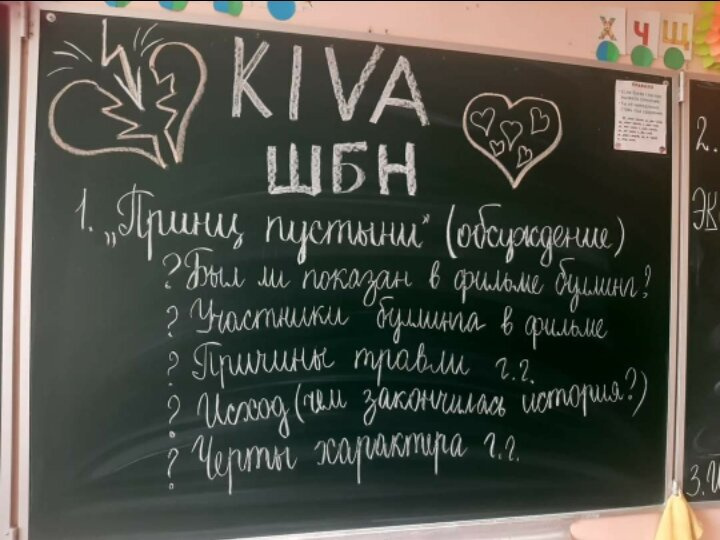 KIVA
ШБН
1. „Принц пустыни" (обсуждение)
? Был ли показан в фильме буллинг?
? Участники буллинга в фильме
? Причины травли г.г.
? Исход (чем закончилась история?)
? Черты характера г.г.
Х Ч Щ
ПРАВИЛО
2.
ЭК
3. И